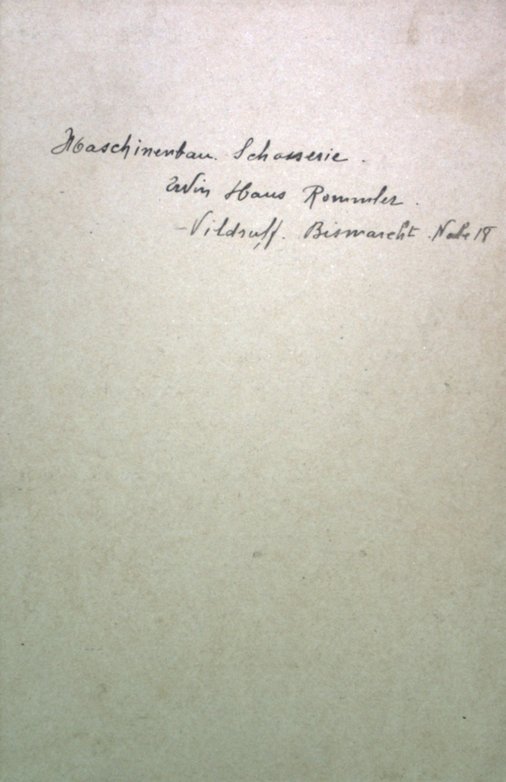 Maschinenbau. Schosserie.
Win Haus Rommler.
Vildruff. Bismarcht. Nole 18